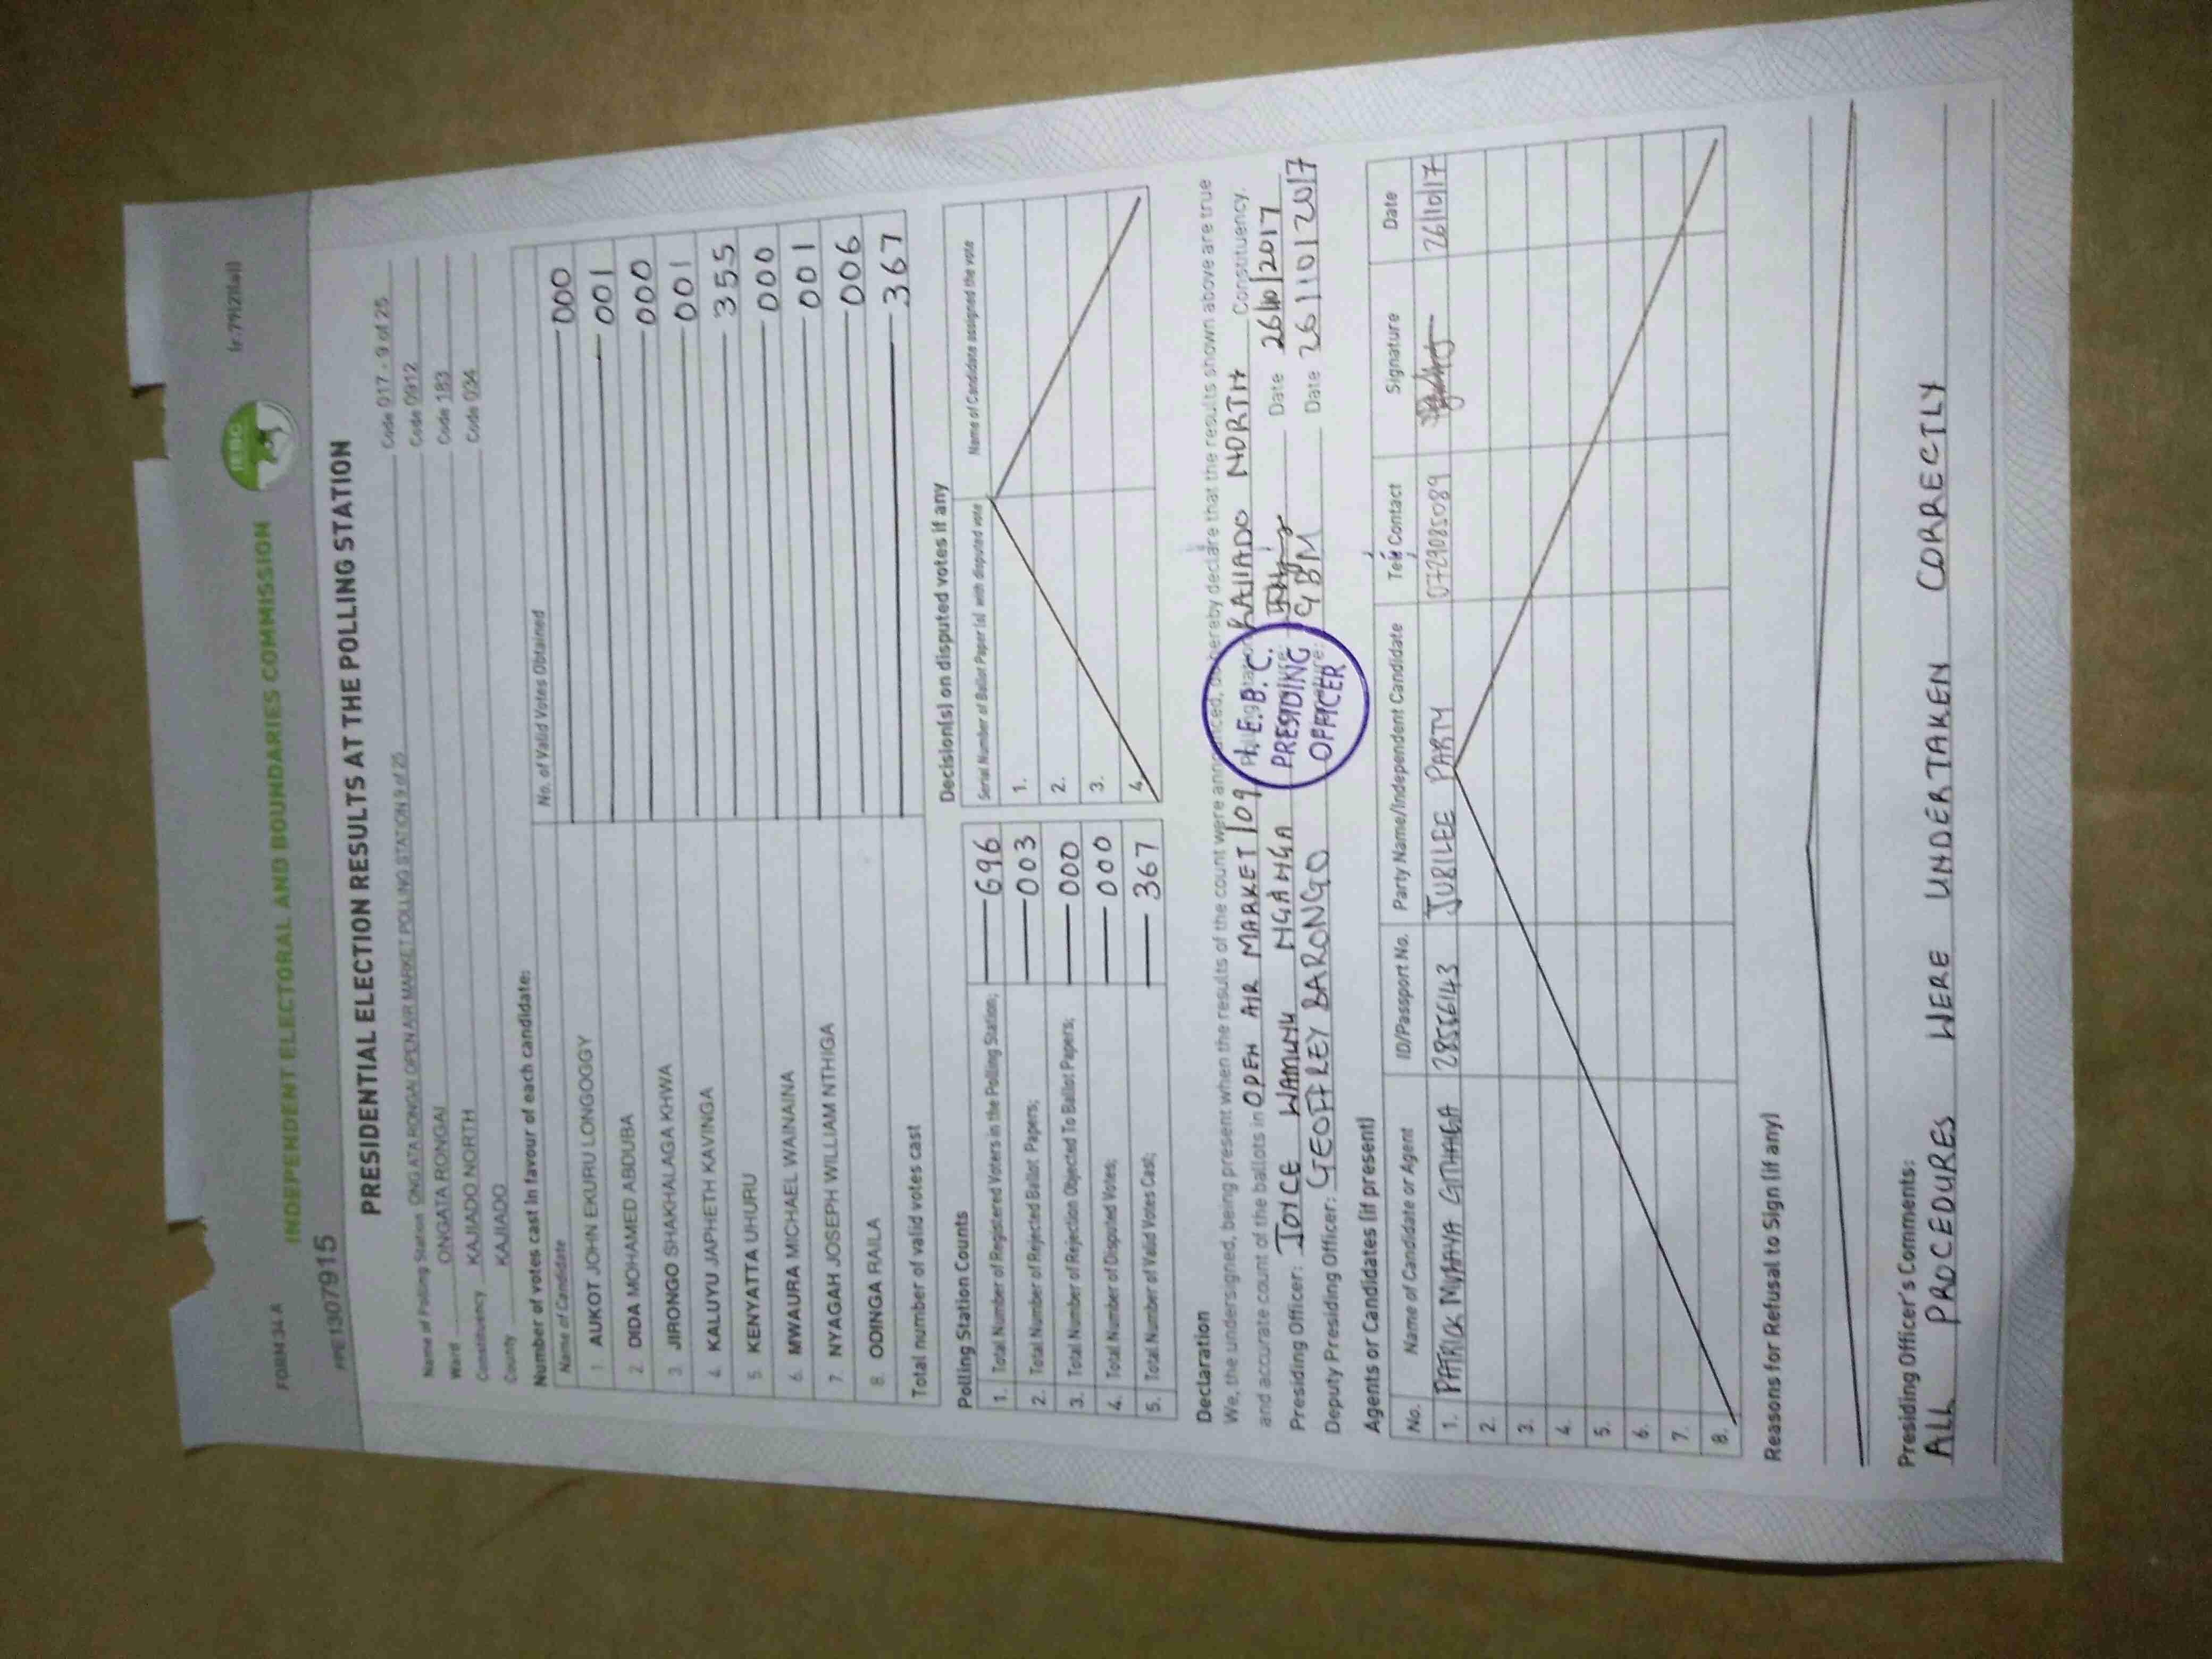 FORM 34A
INDEPENDENT ELECTORAL AND BOUNDARIES COMMISSION
IEBC
PPE1307915
PRESIDENTIAL ELECTION RESULTS AT THE POLLING STATION
Name of Polling Station ONGATA RONGAI OPEN AIR MARKET POLLING STATION 9 of 25 Code 017 - 9 of 25
Ward ONGATA RONGAI Code 0912
Constituency KAJIADO NORTH Code 183
County KAJIADO Code 034
Number of votes cast in favour of each candidate:
Name of Candidate No. of Valid Votes Obtained
1 AUKOT JOHN EKURU LONGOGGY 000
2 DIDA MOHAMED ABDUBA 001
3 JIRONGO SHAKHALAGA KHWA 000
4 KALUYU JAPHETH KAVINGA 001
5 KENYATTA UHURU 355
6 MWAURA MICHAEL WAINAINA 000
7. NYAGAH JOSEPH WILLIAM NTHIGA 001
8. ODINGA RAILA 006
Total number of valid votes cast 367
Polling Station Counts
1. Total Number of Registered Voters in the Polling Station; 696
2. Total Number of Rejected Ballot Papers; 003
3. Total Number of Rejection Objected To Ballot Papers; 000
4. Total Number of Disputed Votes; 000
5. Total Number of Valid Votes Cast; 367
Decision(s) on disputed votes if any
Serial Number of Ballot Paper (s) with disputed vote Name of Candidate assigned the vote
1.
2.
3.
4.
Declaration
We, the undersigned, being present when the results of the count were announced, do hereby declare that the results shown above are true
and accurate count of the ballots in OPEN AIR MARKET 109 KAJIADO NORTH Constituency.
Presiding Officer: JOYCE WAMUHU NGANGA Date 26/10/2017
Deputy Presiding Officer: GEOFFREY BARONGO GBM Date 26/10/2017
I.E.B.C.
PRESIDING
OFFICER
Agents or Candidates (if present)
No. Name of Candidate or Agent ID/Passport No. Party Name/Independent Candidate Tel: Contact Signature Date
1. PATRICK MURAYA GITHAIGA 28556143 JUBILEE PARTY 0729085089 26/10/17
2.
3.
4.
5.
6.
7.
8.
Reasons for Refusal to Sign (if any)
Presiding Officer's Comments:
ALL PROCEDURES WERE UNDERTAKEN CORRECTLY